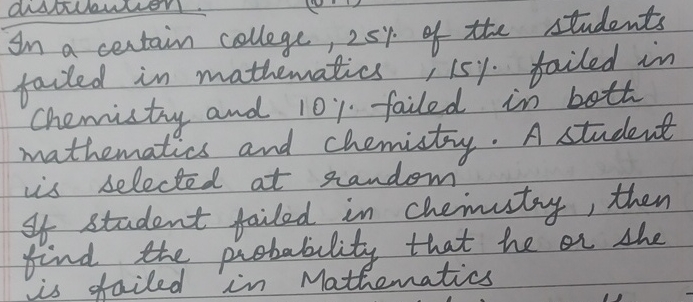 distribution.
In a certain college, 25% of the students
failed in mathematics, 15%. failed in
Chemistry and 10%. failed in both
mathematics and chemistry. A student
is selected at random
If student failed in chemistry, then
find the probability that he or she
is failed in Mathematics